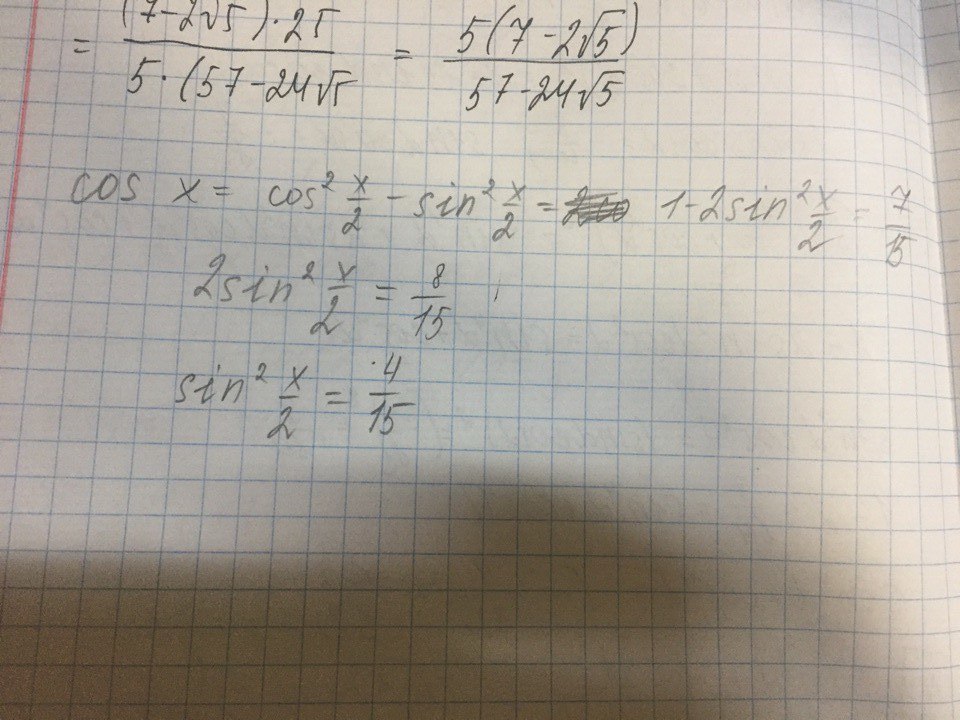 = (7-2√5)·25 / 5·(57-24√5 = 5(7-2√5) / 57-24√5
cos x = cos² x/2 - sin² x/2 = 1-2sin² x/2 = 7/15
2sin² x/2 = 8/15
sin² x/2 = 4/15